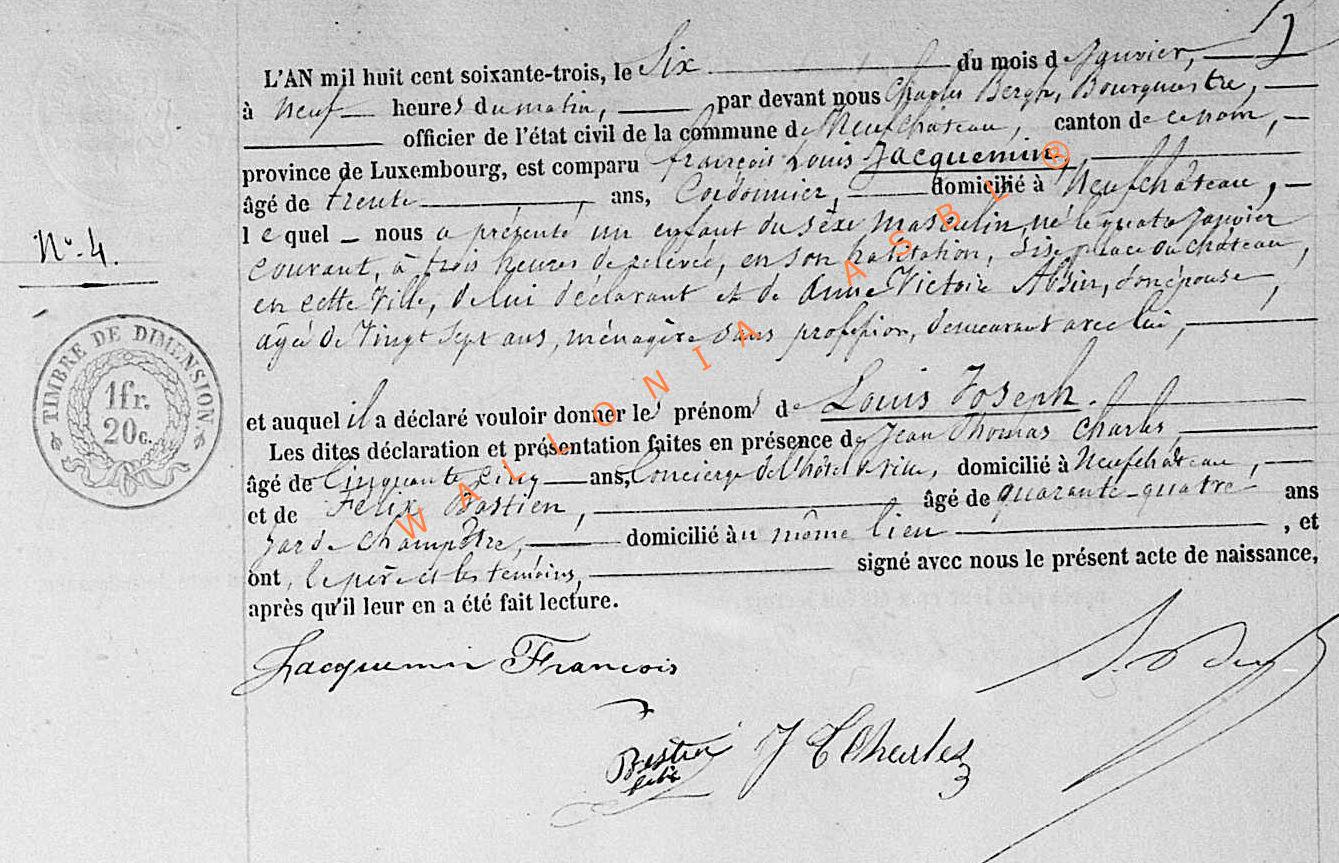 L'AN mil huit cent soixante-trois, le Six du mois de Janvier,
à neuf heures du matin, par devant nous Charles Bergh, Bourgmestre,
officier de l'état civil de la commune de Neufchâteau, canton de ce nom,
province de Luxembourg, est comparu françois Louis Jacquemin,
âgé de trente ans, Cordonnier, domicilié à Neufchâteau,
lequel nous a présenté un enfant du sexe masculin, né le quatre Janvier
courant, à trois heures de relevée, en son habitation, sise place du château,
en cette ville, de lui déclarant et de Anne Victoire, son épouse,
âgée de vingt sept ans, ménagère sans profession, demeurant avec lui,
N° 4.
TIMBRE DE DIMENSION
1 fr.
20 c.
et auquel il a déclaré vouloir donner les prénoms de Louis Joseph.
Les dites déclaration et présentation faites en présence de Jean Thomas Charles,
âgé de Cinquante cinq ans, Concierge de l'hôtel de ville, domicilié à Neufchâteau,
et de Félix Bastien, âgé de quarante-quatre ans
garde champêtre, domicilié au même lieu, et
ont, le père et les témoins, signé avec nous le présent acte de naissance,
après qu'il leur en a été fait lecture.
Jacquemin François
J T Charles
WALLONIA ASBL ®